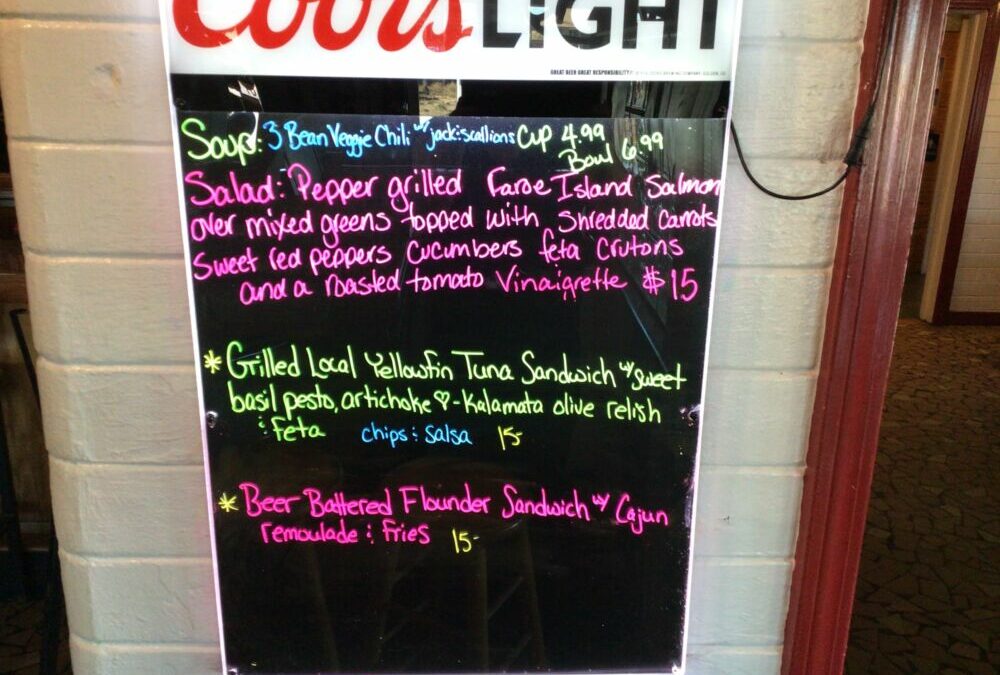 Coors LIGHT
GREAT BEER GREAT RESPONSIBILITY
Soup: 3 Bean Veggie Chili w/ jack & scallions Cup 4.99
Bowl 6.99
Salad: Pepper grilled Faroe Island Salmon
over mixed greens topped with Shredded Carrots
Sweet red peppers Cucumbers feta Crutons
and a roasted tomato Vinaigrette $15
* Grilled Local Yellowfin Tuna Sandwich w/ sweet
basil pesto, artichoke ♡-Kalamata olive relish
& feta chips & Salsa 15-
* Beer Battered Flounder Sandwich w/ Cajun
remoulade & fries 15-